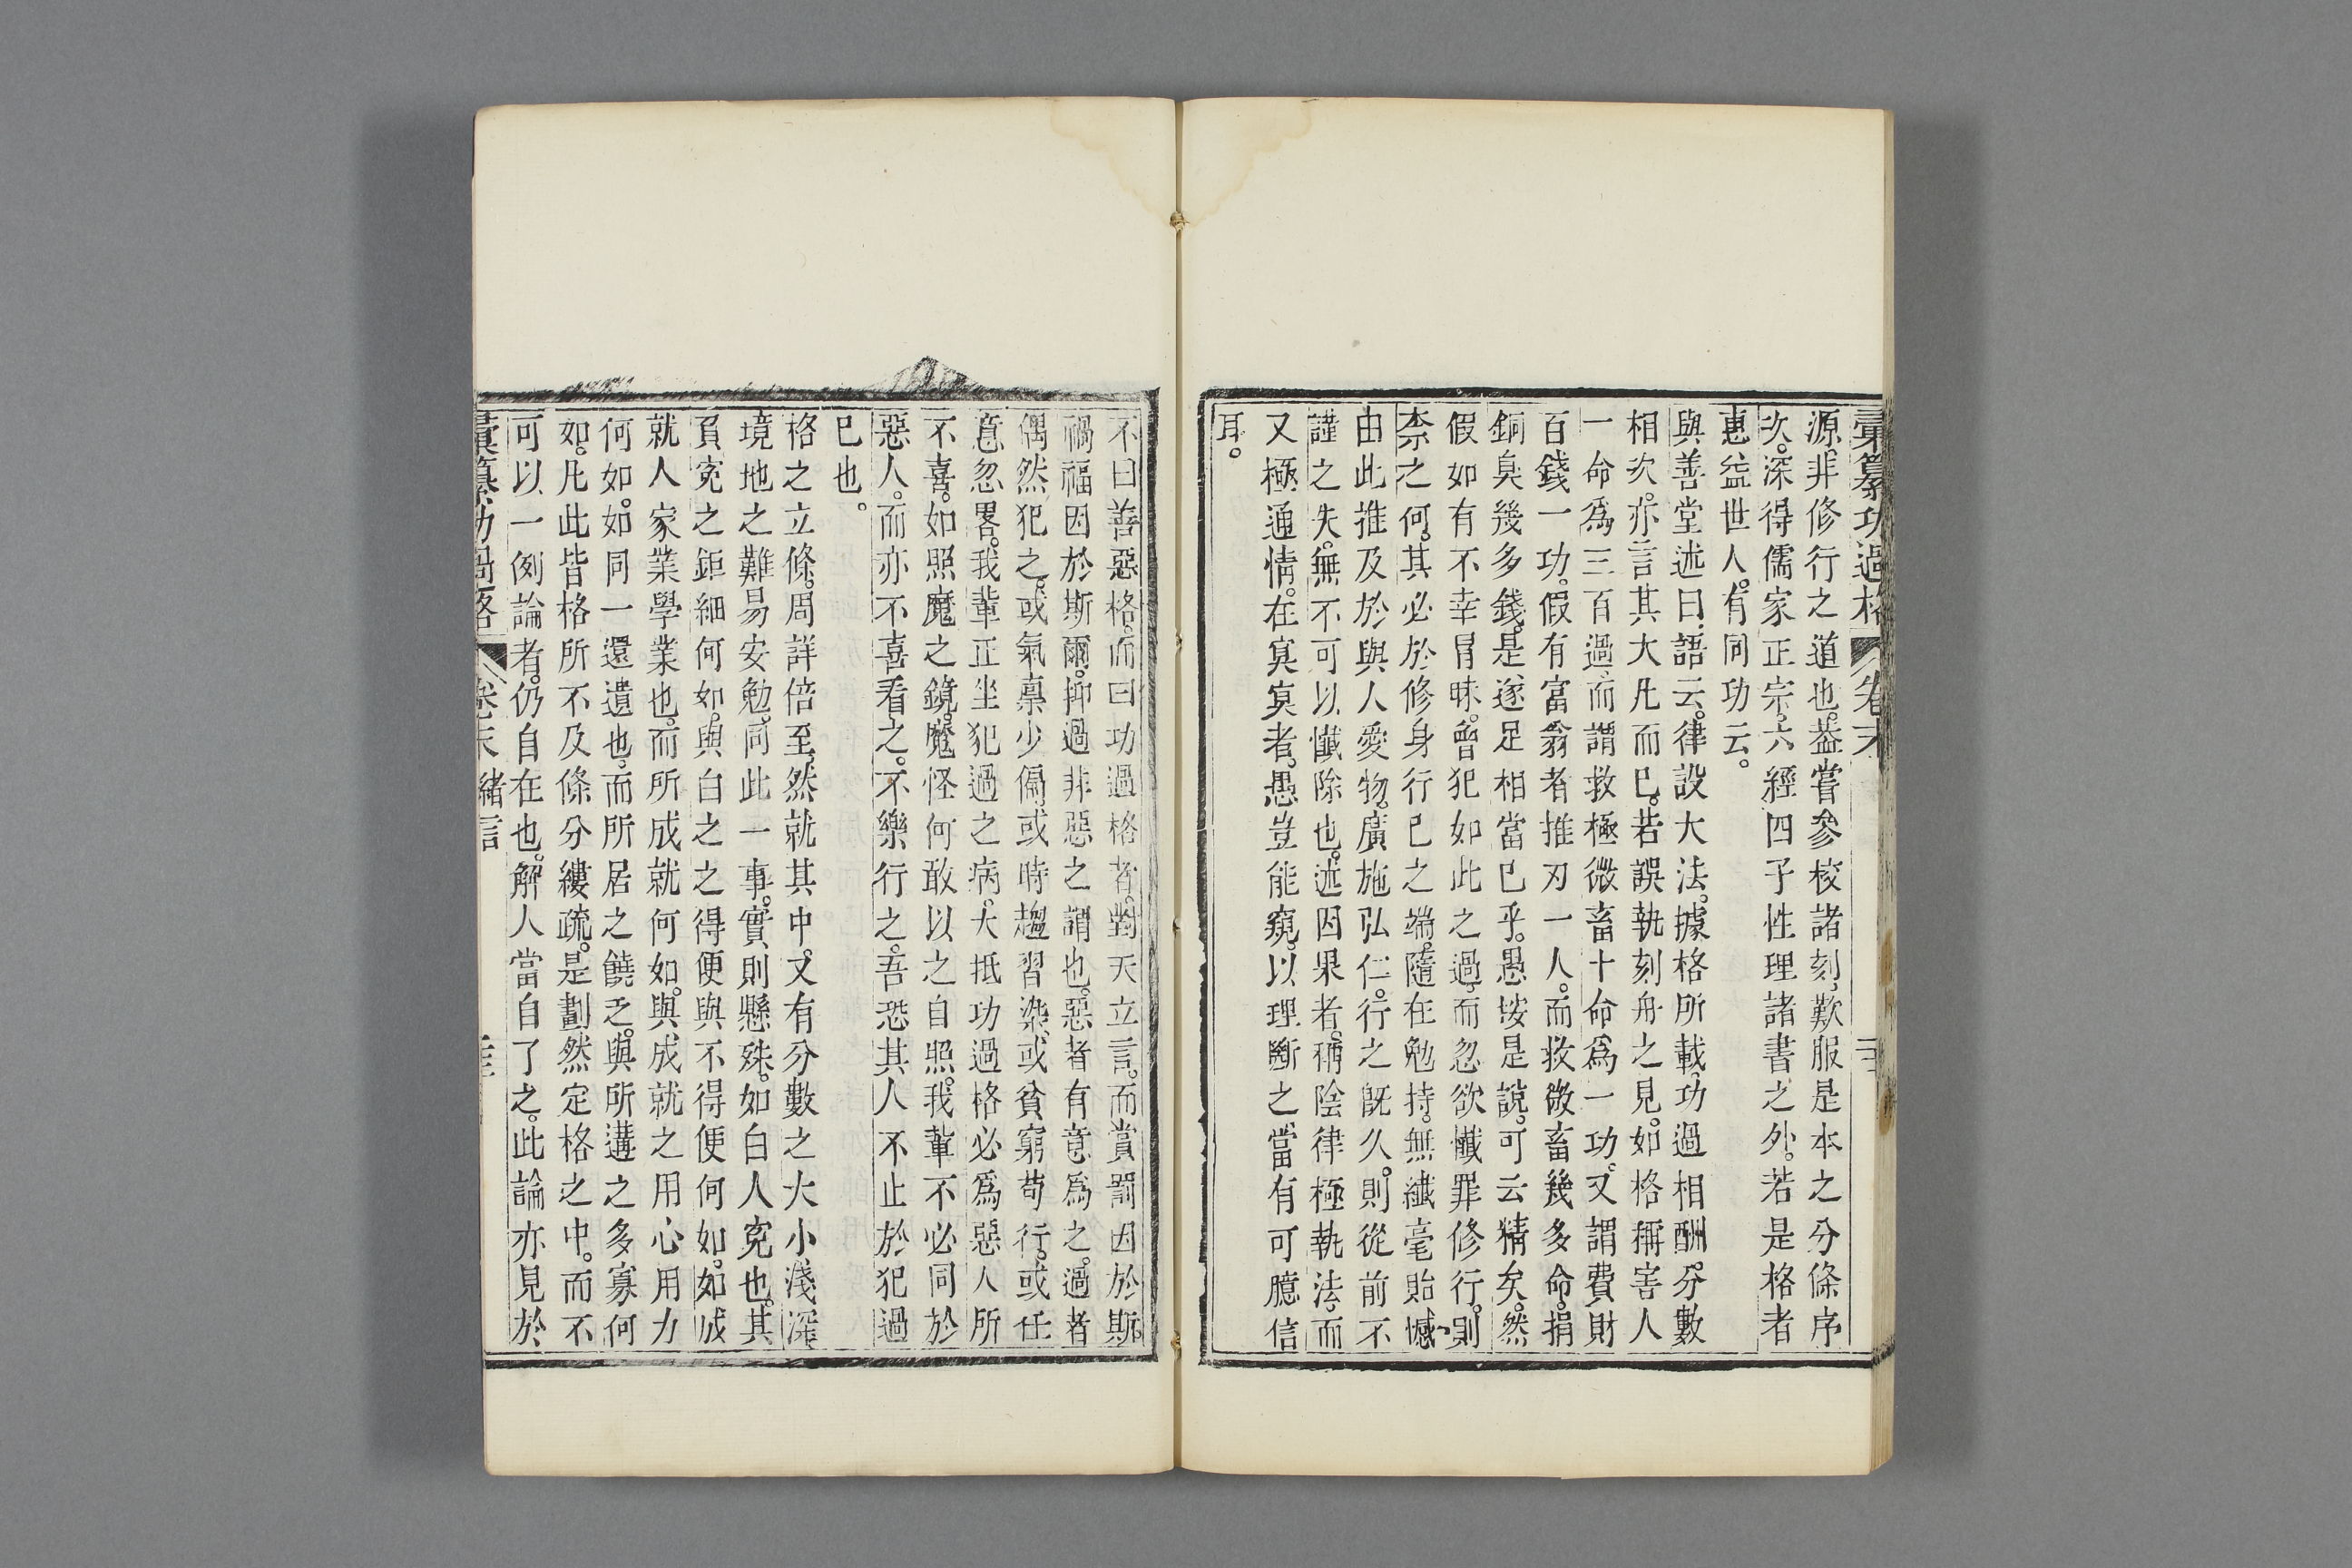 彙纂功過格 卷末
源。非修行之道也。葢嘗參校諸刻。歎服是本之分條序
次。深得儒家正宗。六經四子性理諸書之外。若是格者
惠益世人。有同功云。
與善堂述曰。語云。律設大法。據格所載。功過相酬。分數
相次。亦言其大凡而已。若誤執刻舟之見。如格稱害人
一命爲三百過。而謂救極微畜十命爲一功。又謂費財
百錢一功。假有富翁者推刃一人。而救微畜幾多命。捐
銅臭幾多錢。是遂足相當已乎。愚按是說。可云精矣。然
假如有不幸冒昧。曾犯如此之過。而忽欲懺罪修行。則
柰之何。其必於修身行已之端。隨在勉持。無纖毫貽憾。
由此推及於與人愛物。廣施弘仁。行之旣久。則從前不
謹之失。無不可以懺除也。述因果者。稱陰律極執法。而
又極通情。在冥冥者。愚豈能窺。以理斷之。當有可臆信
耳。
不曰善惡格。而曰功過格者。對天立言。而賞罰因於斯。
禍福因於斯爾。抑過非惡之謂也。惡者有意爲之。過者
偶然犯之。或氣稟少偏。或時趨習染。或貧窮苟行。或任
意忽畧。我輩正坐犯過之病。大抵功過格必爲惡人所
不喜。如照魔之鏡。魔怪何敢以之自照。我輩不必同於
惡人。而亦不喜看之。不樂行之。吾恐其人不止於犯過
已也。
格之立條。周詳倍至。然就其中。又有分數之大小淺深
境地之難易安勉。同此一事。實則懸殊。如白人寃也。其
負寃之鉅細何如。與白之之得便與不得便何如。如成
就人家業學業也。而所成就何如。與成就之用心用力
何如。如同一還遺也。而所居之饒乏。與所遘之多寡何
如。凡此皆格所不及條分縷疏。是劃然定格之中。而不
可以一例論者。仍自在也。解人當自了之。此論亦見於
彙纂功過格 卷末 緒言